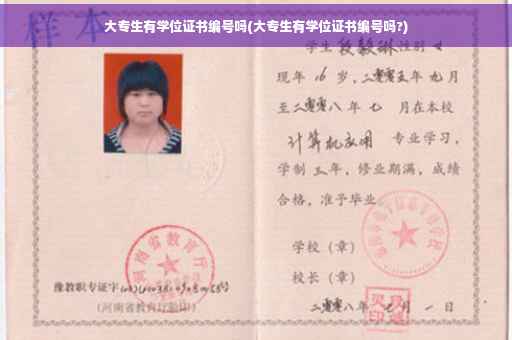 大专生有学位证书编号吗(大专生有学位证书编号吗?)
样本
学生段毅琳性别女
现年16岁,二零零五年九月
至二零零八年七月在本校
计算机应用 专业学习,
学制三年,修业期满,成绩
合格,准予毕业
学校(章)
校长(章)
二零零八年七月一日
河南省教育厅
豫教职专证字
(河南省教育厅验印)